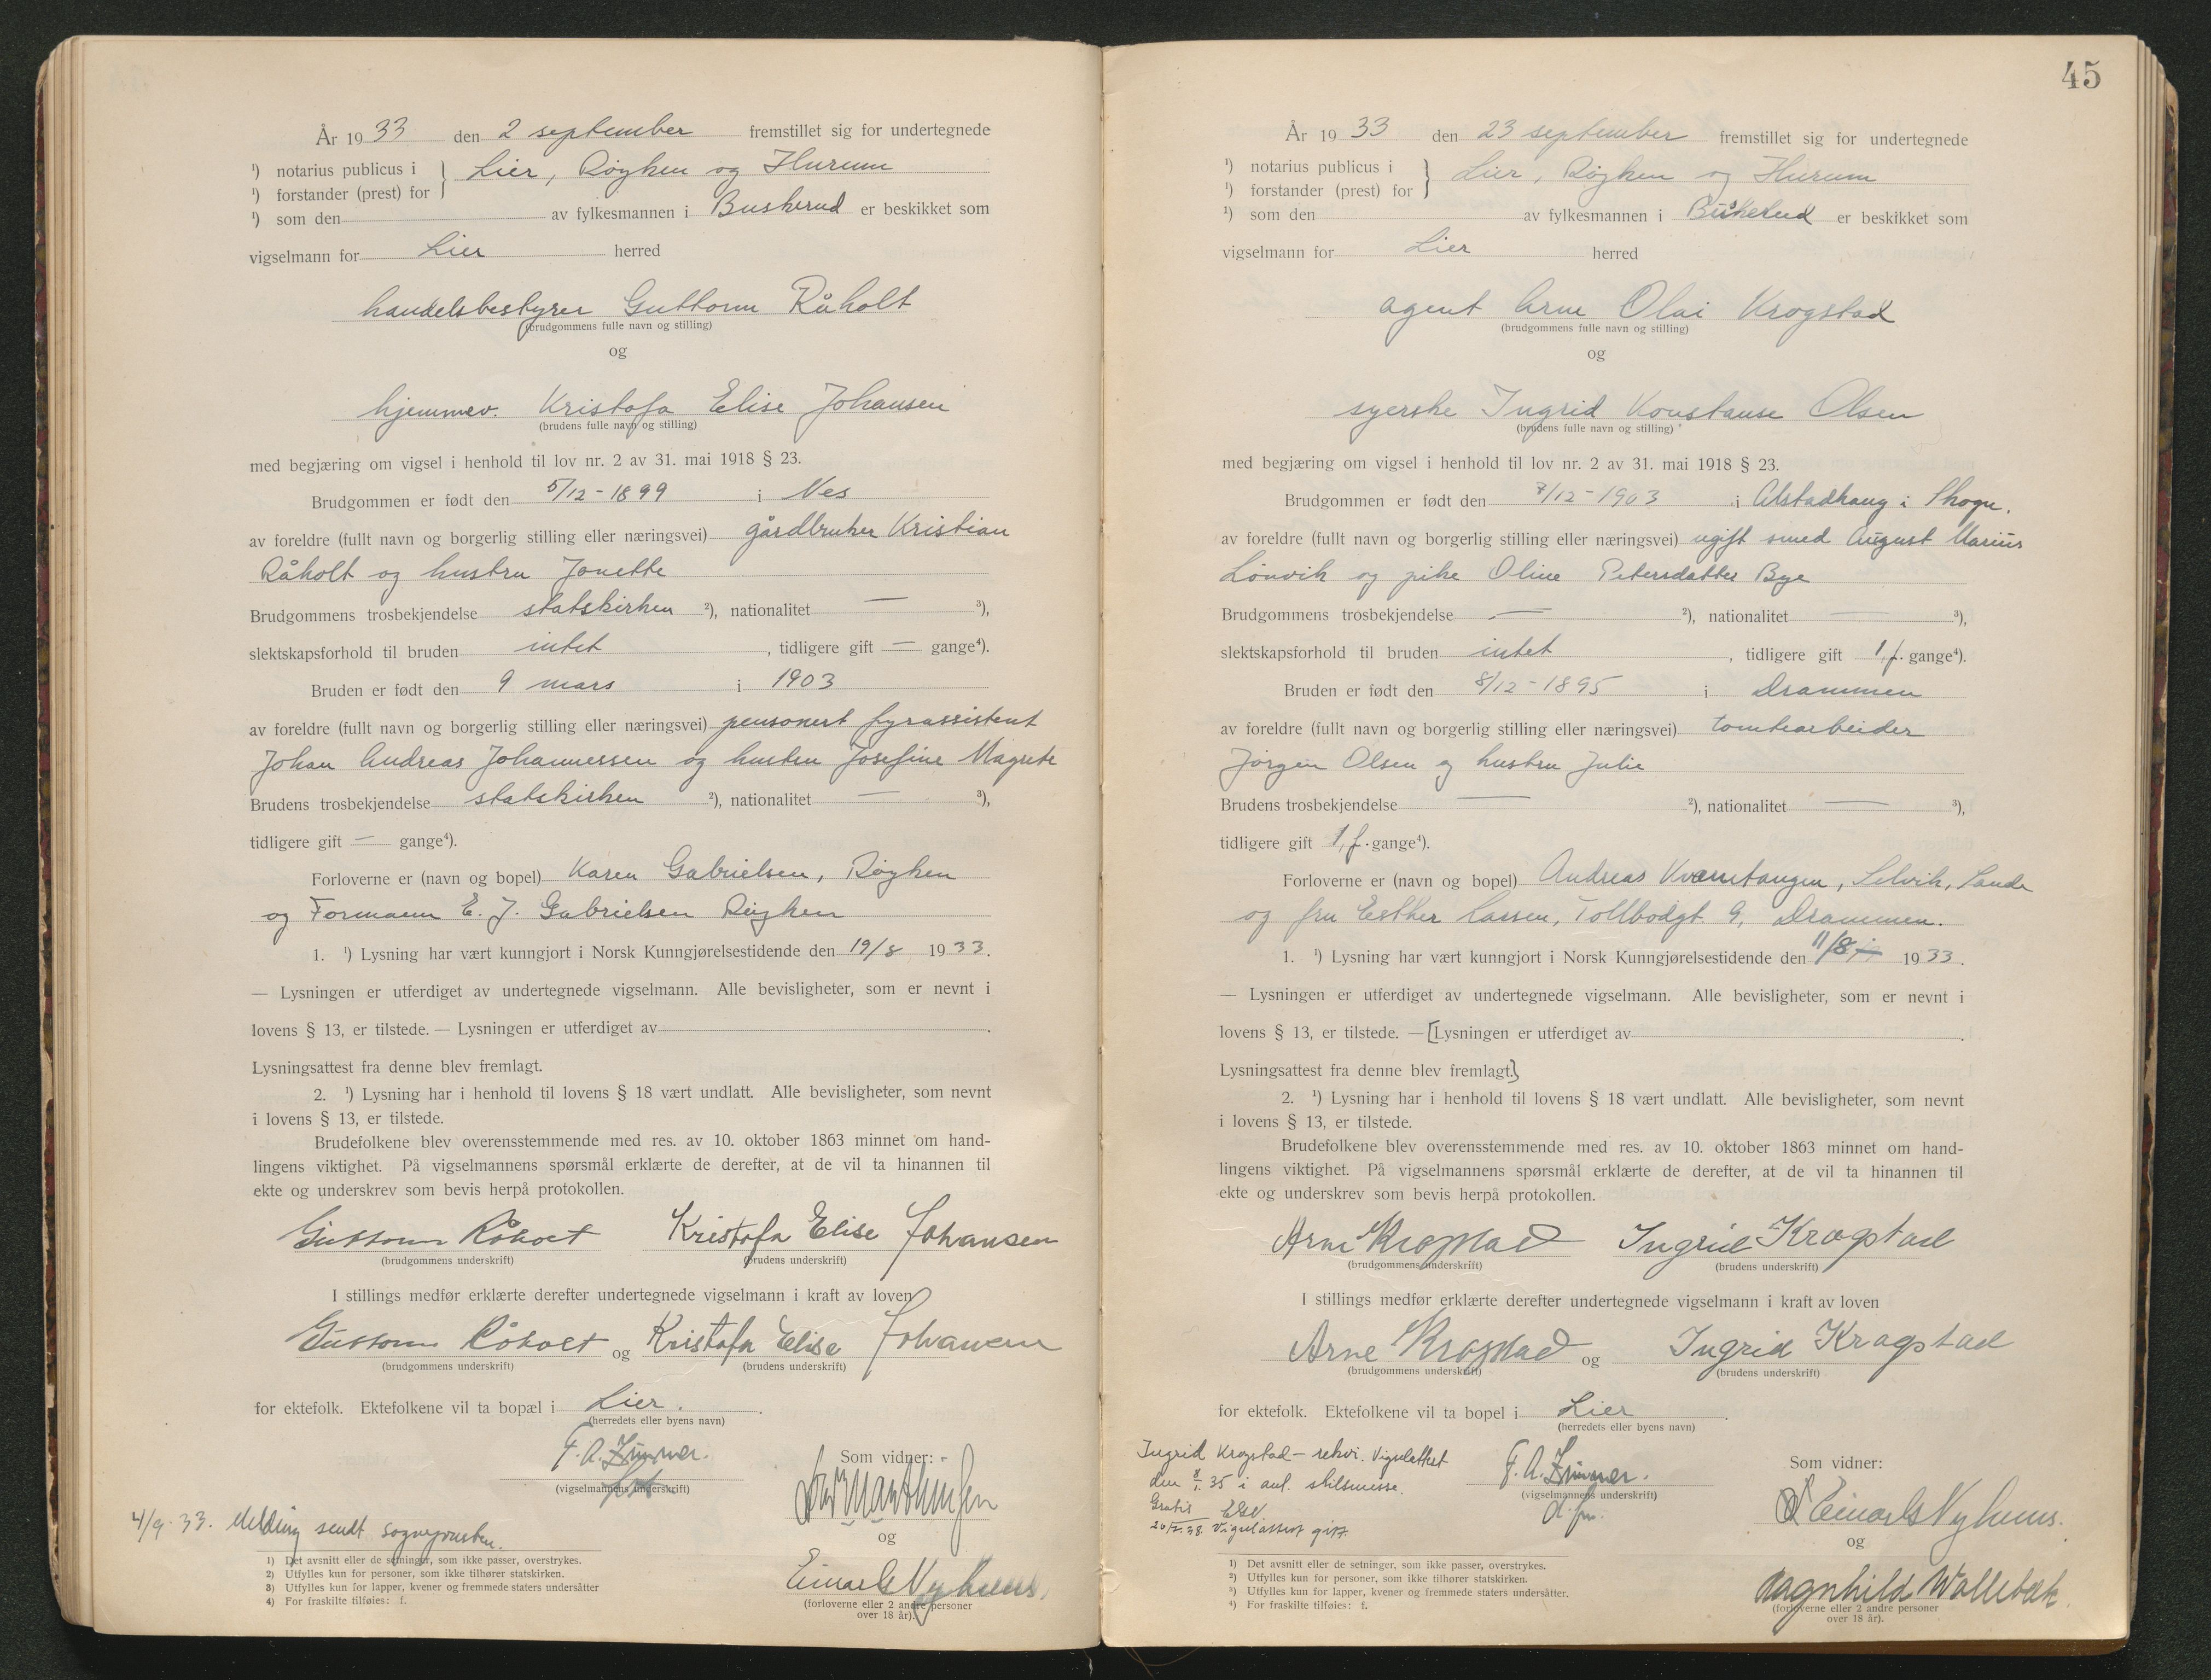 År 19 33 den 2 september fremstillet sig for undertegnede
¹) notarius publicus i } Lier, Røyken og Hurum
¹) forstander (prest) for
¹) som den av fylkesmannen i Buskerud er beskikket som
vigselmann for Lier herred
handelsbestyrer Guttorm Råholt
(brudgommens fulle navn og stilling)
og
hjemmev. Kristofa Elise Johansen
(brudens fulle navn og stilling)
med begjæring om vigsel i henhold til lov nr. 2 av 31. mai 1918 § 23.
Brudgommen er født den 5/12-1899 i Nes
av foreldre (fullt navn og borgerlig stilling eller næringsvei) gårdbruker Kristian
Råholt og hustru Jonette
Brudgommens trosbekjendelse statskirken ²), nationalitet — ³),
slektskapsforhold til bruden intet, tidligere gift — gange⁴).
Bruden er født den 9 mars i 1903
av foreldre (fullt navn og borgerlig stilling eller næringsvei) pensonert fyrassistent
Johan Andreas Johannessen og hustru Josefine Magrete
Brudens trosbekjendelse statskirken ²), nationalitet — ³),
tidligere gift — gange⁴).
Forloverne er (navn og bopel) Karen Gabrielsen, Røyken
og Formann E. J. Gabrielsen Røyken
1. ¹) Lysning har vært kunngjort i Norsk Kunngjørelsestidende den 19/8 1933.
— Lysningen er utferdiget av undertegnede vigselmann. Alle bevisligheter, som er nevnt i
lovens § 13, er tilstede. — Lysningen er utferdiget av .
Lysningsattest fra denne blev fremlagt.
2. ¹) Lysning har i henhold til lovens § 18 vært undlatt. Alle bevisligheter, som nevnt
i lovens § 13, er tilstede.
Brudefolkene blev overensstemmende med res. av 10. oktober 1863 minnet om hand-
lingens viktighet. På vigselmannens spørsmål erklærte de derefter, at de vil ta hinannen til
ekte og underskrev som bevis herpå protokollen.
Guttorm Råholt Kristofa Elise Johansen
(brudgommens underskrift) (brudens underskrift)
I stillings medfør erklærte derefter undertegnede vigselmann i kraft av loven
Guttorm Råholt og Kristofa Elise Johansen
(brudgommens underskrift) (brudens underskrift)
for ektefolk. Ektefolkene vil ta bopæl i Lier.
(herredets eller byens navn)
F. A. Zimmer. Som vidner:
(vigselmannens underskrift)
og
4/9-33. Melding sendt sognepresten.
Einar S Nyhuus.
(forloverne eller 2 andre personer
over 18 år).
1) Det avsnitt eller de setninger, som ikke passer, overstrykes.
2) Utfylles kun for personer, som ikke tilhører statskirken.
3) Utfylles kun for lapper, kvener og fremmede staters undersåtter
4) For fraskilte tilføies: f.
45
År 19 33 den 23 september fremstillet sig for undertegnede
¹) notarius publicus i } Lier, Røyken og Hurum
¹) forstander (prest) for
¹) som den av fylkesmannen i Buskerud er beskikket som
vigselmann for Lier herred
agent Arne Olai Krogstad
(brudgommens fulle navn og stilling)
og
syerske Ingrid Konstanse Olsen
(brudens fulle navn og stilling)
med begjæring om vigsel i henhold til lov nr. 2 av 31. mai 1918 § 23.
Brudgommen er født den 7/12-1903 i Alstadhaug i Skogn.
av foreldre (fullt navn og borgerlig stilling eller næringsvei) ugift smed August Marius
Lönvik og pike Oline Petersdatter Bye
Brudgommens trosbekjendelse — ²), nationalitet — ³),
slektskapsforhold til bruden intet, tidligere gift 1, f. gange⁴).
Bruden er født den 8/12-1895 i Drammen
av foreldre (fullt navn og borgerlig stilling eller næringsvei) tomtearbeider
Jørgen Olsen og hustru Julie
Brudens trosbekjendelse — ²), nationalitet — ³),
tidligere gift 1, f. gange⁴).
Forloverne er (navn og bopel) Andreas Kværnetangen, Selvik, Sande
og fru Esther Larsen, Tollbodgt. 9, Drammen.
1. ¹) Lysning har vært kunngjort i Norsk Kunngjørelsestidende den 11/8 1933.
— Lysningen er utferdiget av undertegnede vigselmann. Alle bevisligheter, som er nevnt i
lovens § 13, er tilstede. — [Lysningen er utferdiget av .
Lysningsattest fra denne blev fremlagt.]
2. ¹) Lysning har i henhold til lovens § 18 vært undlatt. Alle bevisligheter, som nevnt
i lovens § 13, er tilstede.
Brudefolkene blev overensstemmende med res. av 10. oktober 1863 minnet om hand-
lingens viktighet. På vigselmannens spørsmål erklærte de derefter, at de vil ta hinannen til
ekte og underskrev som bevis herpå protokollen.
Arne Krogstad Ingrid Krogstad
(brudgommens underskrift) (brudens underskrift)
I stillings medfør erklærte derefter undertegnede vigselmann i kraft av loven
Arne Krogstad og Ingrid Krogstad
(brudgommens underskrift) (brudens underskrift)
for ektefolk. Ektefolkene vil ta bopel i Lier.
(herredets eller byens navn)
Ingrid Krogstad — rekvi. Vigselattest
den 8/1. 35 i anl. skilsmisse.
Gratis
Vigselattest gitt.
F. A. Zimmer.
(vigselmannens underskrift)
d. fm.
Som vidner:
Einar S Nyhuus.
og
Ragnhild Wollebæk.
(forloverne eller 2 andre personer
over 18 år).
1) Det avsnitt eller de setninger, som ikke passer, overstrykes.
2) Utfylles kun for personer, som ikke tilhører statskirken.
3) Utfylles kun for lapper, kvener og fremmede staters undersåtter.
4) For fraskilte tilføies: f.